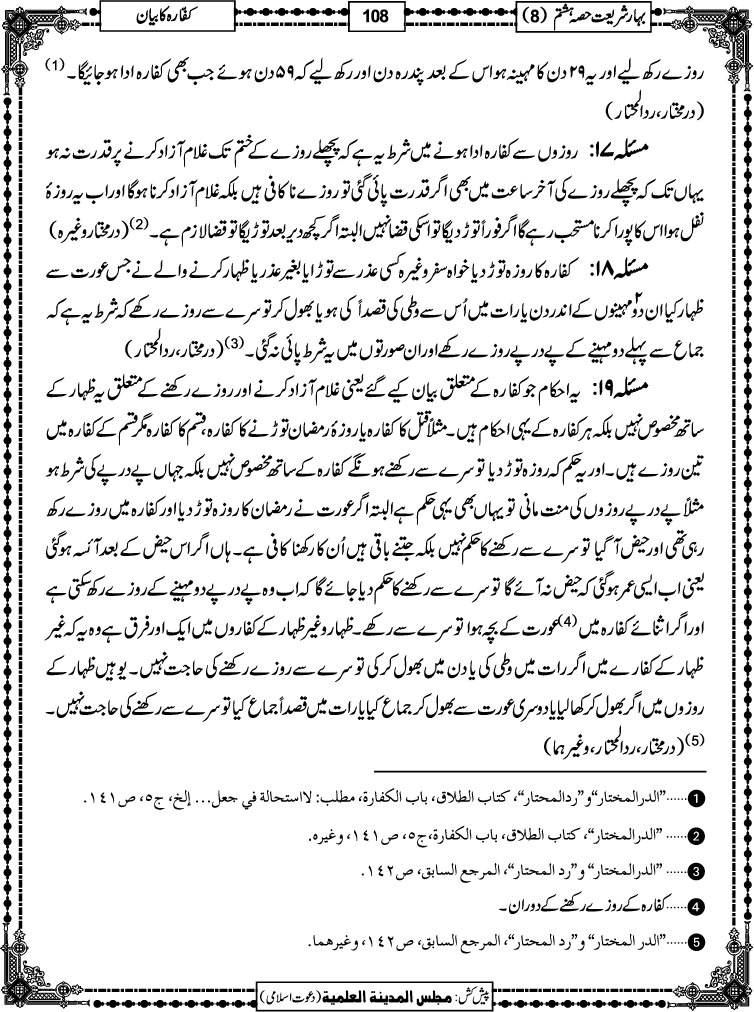 بہار شریعت حصہ ہشتم (8)
108
کفارہ کا بیان
روزے رکھ لیے اور یہ ۲۹ دن کا مہینہ ہو اس کے بعد پندرہ دن اور رکھ لیے کہ ۵۹ دن ہوئے جب بھی کفارہ ادا ہو جائیگا۔ (1)
(درمختار، ردالمحتار)
مسئلہ ۱۷: روزوں سے کفارہ ادا ہونے میں شرط یہ ہے کہ پچھلے روزے کے ختم تک غلام آزاد کرنے پر قدرت نہ ہو
یہاں تک کہ پچھلے روزے کی آخر ساعت میں بھی اگر قدرت پائی گئی تو روزے ناکافی ہیں بلکہ غلام آزاد کرنا ہوگا اور اب یہ روزہ
نفل ہوا اس کا پورا کرنا مستحب رہے گا اگر فوراً توڑ دیگا تو اسکی قضا نہیں البتہ اگر کچھ دیر بعد توڑیگا تو قضا لازم ہے۔ (2) (درمختار وغیرہ)
مسئلہ ۱۸: کفارہ کا روزہ توڑ دیا خواہ سفر وغیرہ کسی عذر سے توڑا یا بغیر عذر یا ظہار کرنے والے نے جس عورت سے
ظہار کیا ان دو۲ مہینوں کے اندر دن یا رات میں اُس سے وطی کی قصداً کی ہو یا بھول کر تو سرے سے روزے رکھے کہ شرط یہ ہے کہ
جماع سے پہلے دو مہینے کے پے درپے روزے رکھے اور ان صورتوں میں یہ شرط پائی نہ گئی۔ (3) (درمختار، ردالمحتار)
مسئلہ ۱۹: یہ احکام جو کفارہ کے متعلق بیان کیے گئے یعنی غلام آزاد کرنے اور روزے رکھنے کے متعلق یہ ظہار کے
ساتھ مخصوص نہیں بلکہ ہر کفارہ کے یہی احکام ہیں۔ مثلاً قتل کا کفارہ یا روزۂ رمضان توڑنے کا کفارہ، قسم کا کفارہ مگر قسم کے کفارہ میں
تین روزے ہیں۔ اور یہ حکم کہ روزہ توڑ دیا تو سرے سے رکھنے ہونگے کفارہ کے ساتھ مخصوص نہیں بلکہ جہاں پے درپے کی شرط ہو
مثلاً پے درپے روزوں کی منت مانی تو یہاں بھی یہی حکم ہے البتہ اگر عورت نے رمضان کا روزہ توڑ دیا اور کفارہ میں روزے رکھ
رہی تھی اور حیض آ گیا تو سرے سے رکھنے کا حکم نہیں بلکہ جتنے باقی ہیں اُن کا رکھنا کافی ہے۔ ہاں اگر اس حیض کے بعد آئسہ ہوگئی
یعنی اب ایسی عمر ہوگئی کہ حیض نہ آئے گا تو سرے سے رکھنے کا حکم دیا جائے گا کہ اب وہ پے درپے دو مہینے کے روزے رکھ سکتی ہے
اور اگر اثنائے کفارہ میں (4) عورت کے بچہ ہوا تو سرے سے رکھے۔ ظہار و غیر ظہار کے کفاروں میں ایک اور فرق ہے وہ یہ کہ غیر
ظہار کے کفارے میں اگر رات میں وطی کی یا دن میں بھول کر کی تو سرے سے روزے رکھنے کی حاجت نہیں۔ یوہیں ظہار کے
روزوں میں اگر بھول کر کھا لیا یا دوسری عورت سے بھول کر جماع کیا یا رات میں قصداً جماع کیا تو سرے سے رکھنے کی حاجت نہیں۔
(5) (درمختار، ردالمحتار، وغیرہما)
1 ......”الدرالمختار“ و”ردالمحتار“، کتاب الطلاق، باب الکفارة، مطلب: لااستحالة في جعل... إلخ، ج٥، ص١٤١.
2 ...... ”الدرالمختار“، کتاب الطلاق، باب الکفارة، ج٥، ص١٤١، وغیرہ.
3 ...... ”الدرالمختار“ و”رد المحتار“، المرجع السابق، ص١٤٢.
4 ......کفارہ کے روزے رکھنے کے دوران۔
5 ......”الدر المختار“ و”رد المحتار“، المرجع السابق، ص١٤٢، وغیرهما.
پیش کش: مجلس المدینة العلمیة (دعوت اسلامی)